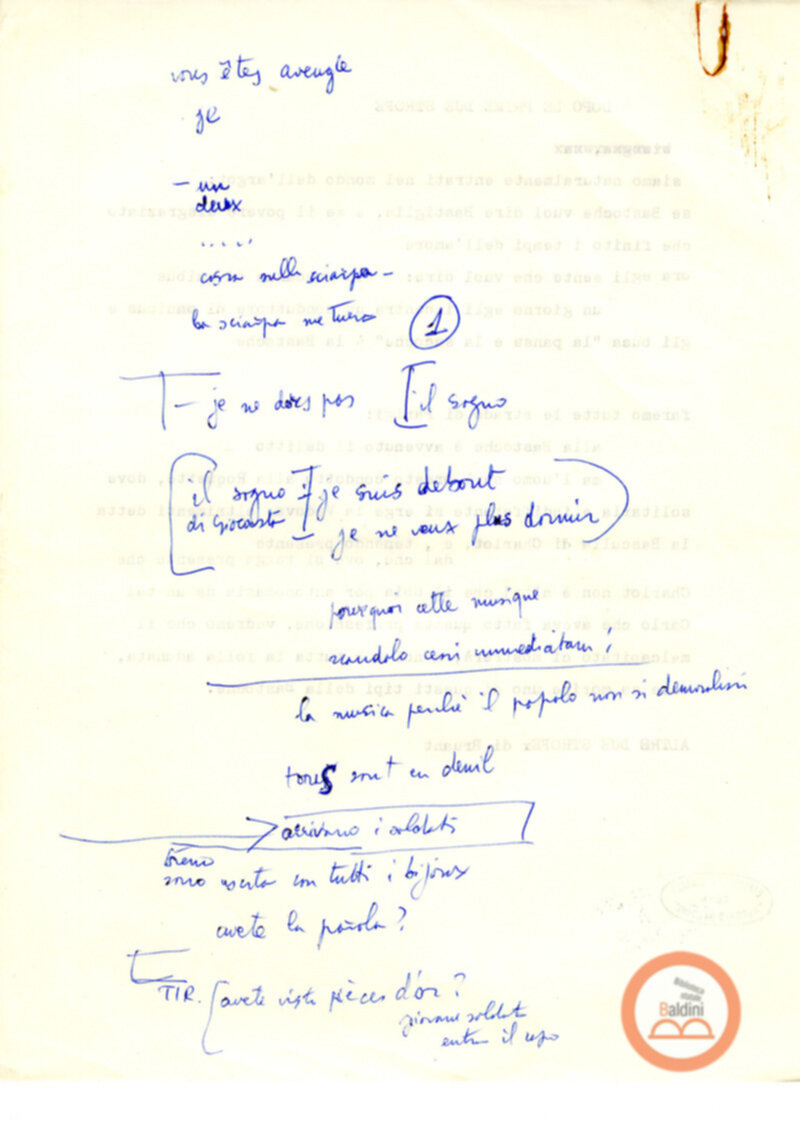 vous êtes aveugle
je
— un
deux
.....
corsa sulla sciarpa —
la sciarpa me tuera
1
— je ne dors pas [il sogno
il sogno : je suis debout
di Giocasta je ne veux plus dormir
pourquoi cette musique
scandalo cessi immediatam!
la musica perché il popolo non si demoralizzi
tous sont en deuil
arrivano i soldati
sono uscita con tutti i bijoux
avete la parola?
TIR. avete visto pièces d'or?
giovane soldato
entra il capo
Biblioteca
statale
Baldini